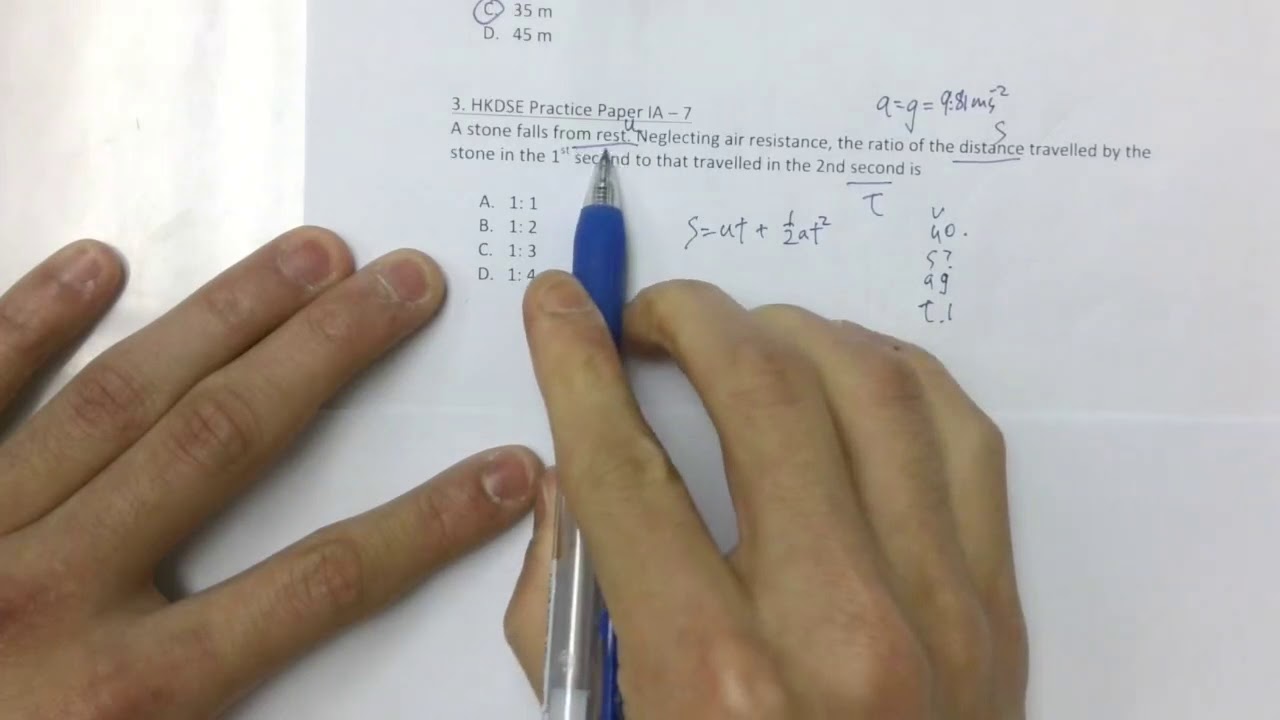 C. 35 m
D. 45 m
3. HKDSE Practice Paper IA – 7
a=g= 9.81ms⁻²
u
S
A stone falls from rest. Neglecting air resistance, the ratio of the distance travelled by the
stone in the 1st second to that travelled in the 2nd second is
t
A. 1: 1
B. 1: 2
C. 1: 3
D. 1: 4
S=ut + ½at²
v
u 0.
s ?
a g
t. 1